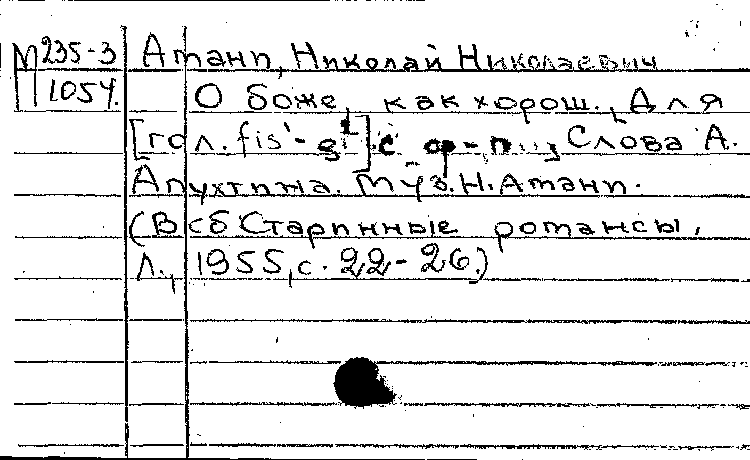 М 235-3 Атанп, Николай Николаевич
1054. О боже, как хорош., Для
[гол. fis'- g²] с ф-п., Слова А.
Апухтина. Муз. Н. Атанп.
(В сб Старинные романсы,
Л., 1955, с. 22-26.)